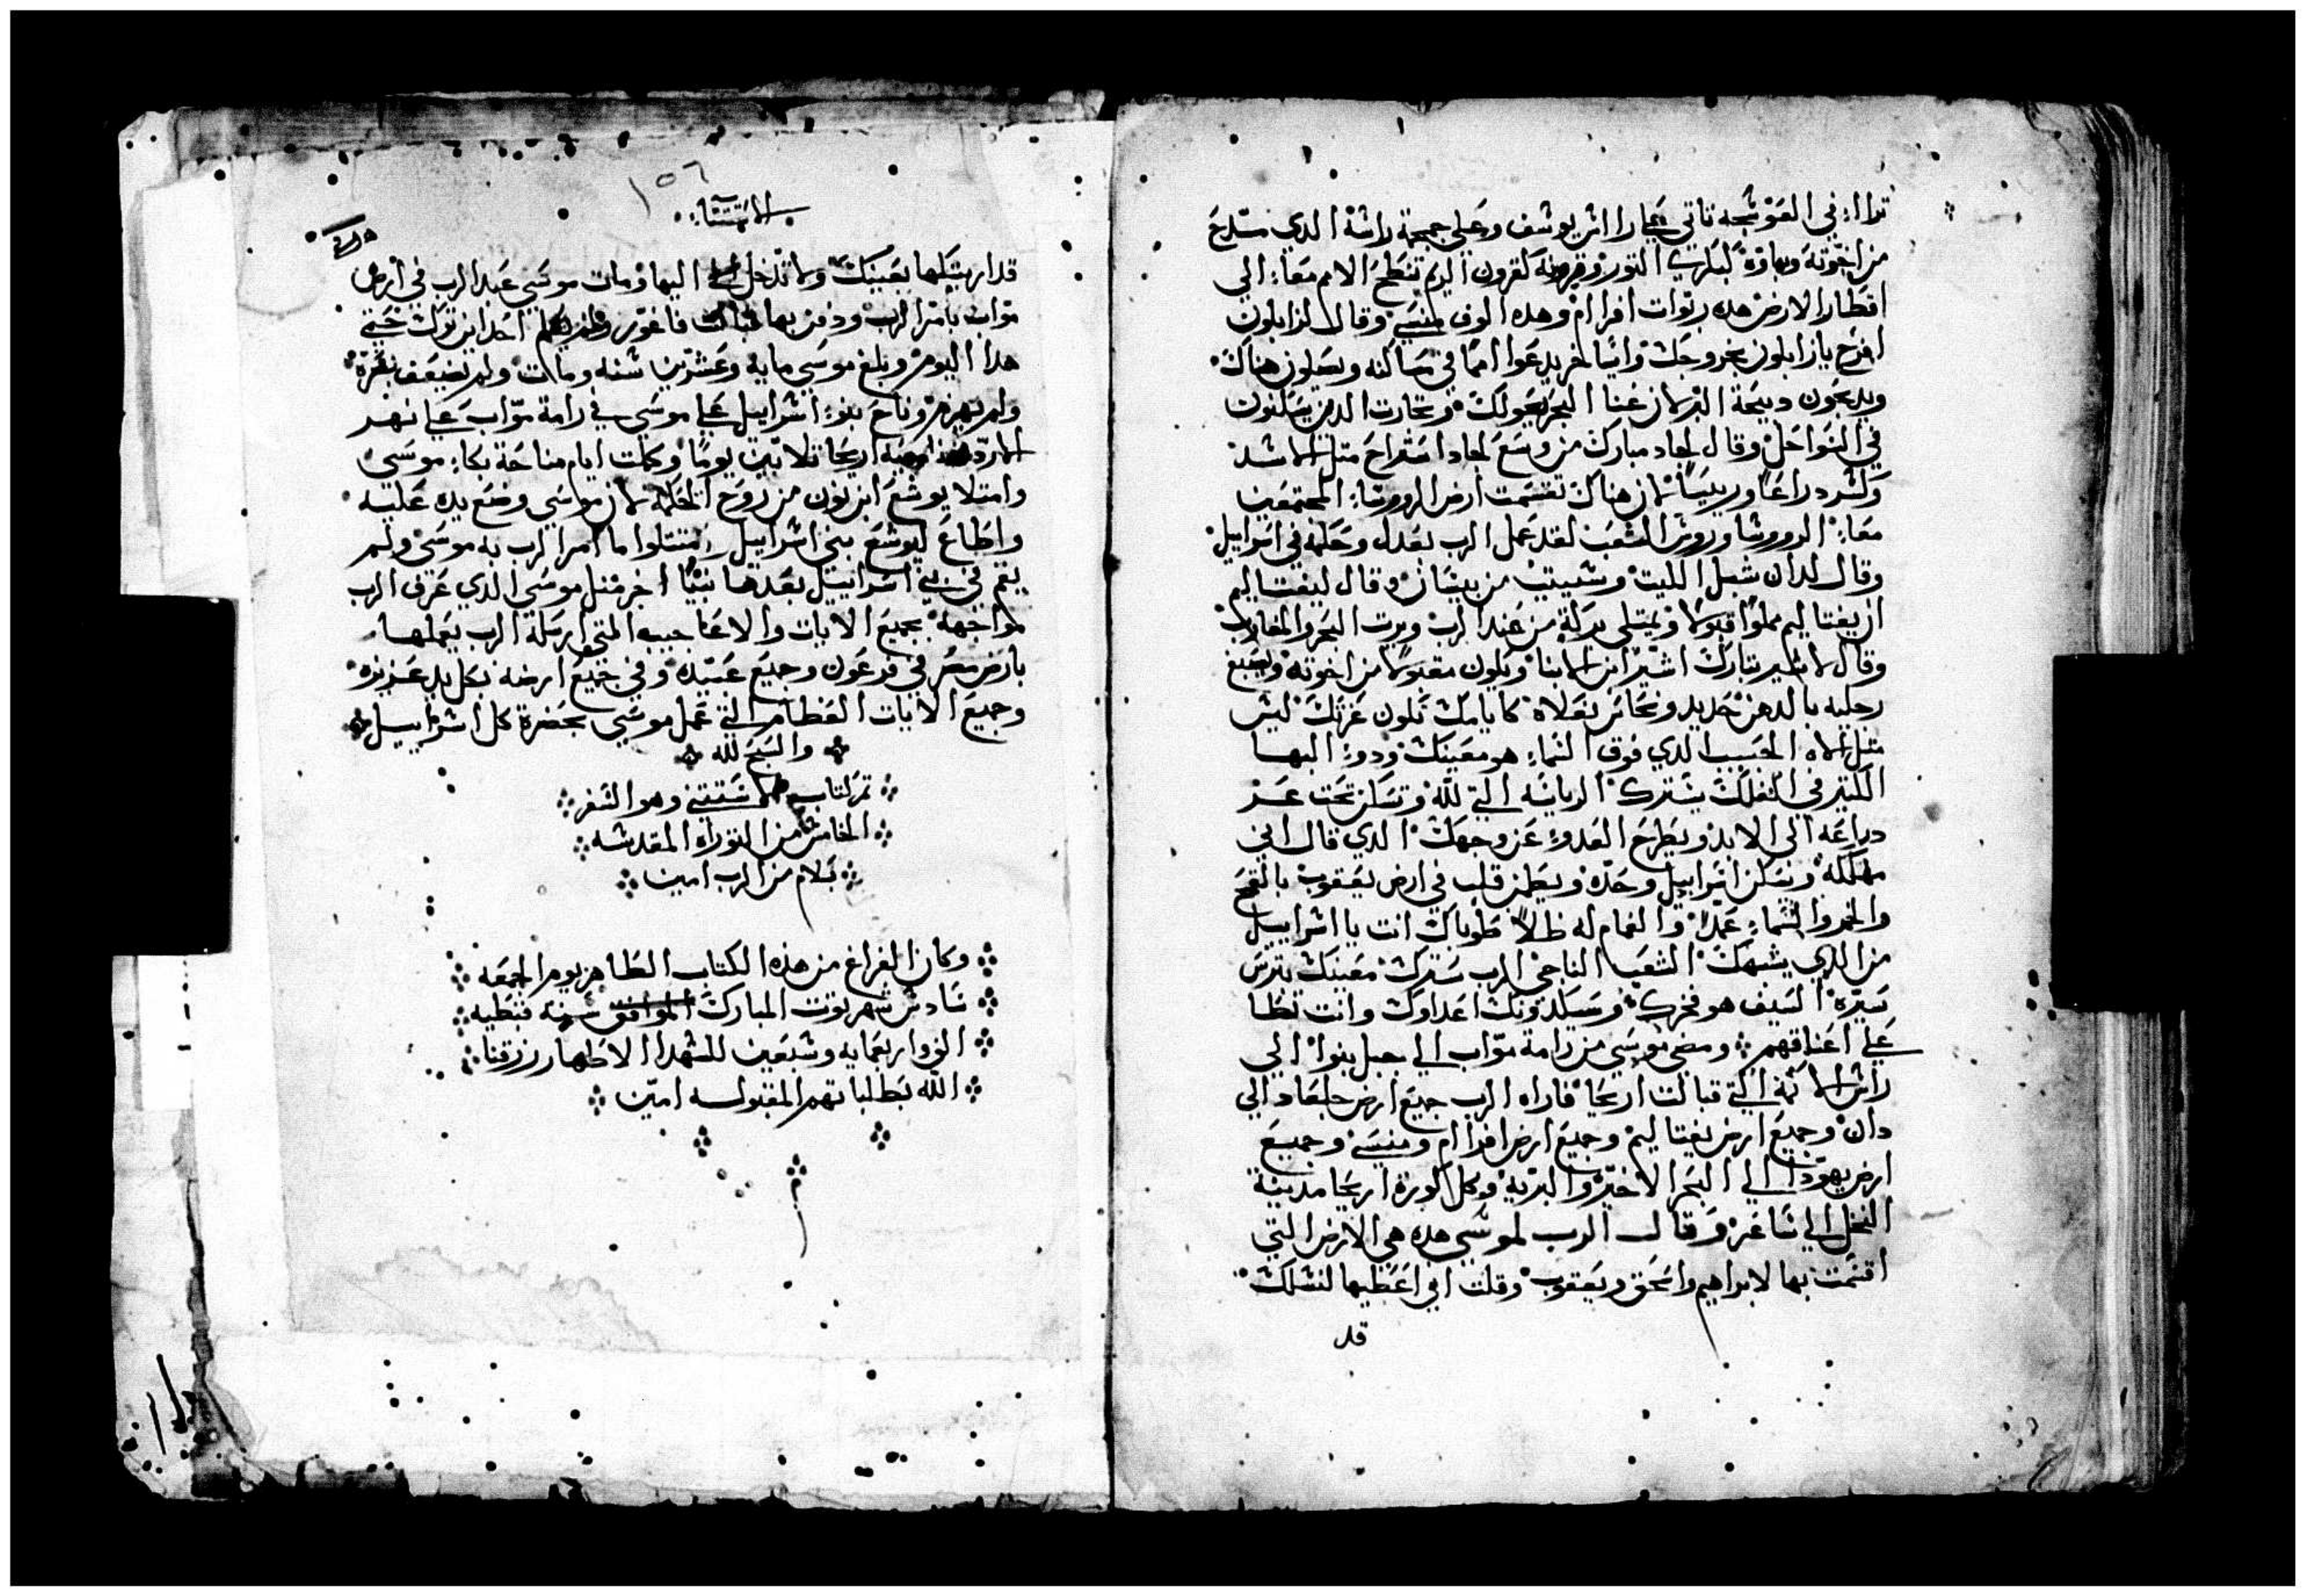 ترا اي في العوسجه تاتي علي راس يوسف وعلي جمجمة راسه الدي
من اخوته التور وقرونه كقرون الريم تنطح الامم معا الي
اقطار الارض هده ربوات افرا ام وهده الوف منسي وقال لزابلون
افرح يا زابلون بخروجك وايساخر يدعوا امما في مساكنه ويصلون هناك
ويدبحون دبيحة البر لان غنا البحر يعولك وتجارت الدين يسكنون
في السواحل وقال لجاد مبارك من وسع لجاد استراح متل الاسد
وكسر دراعا وريسا لان هناك تقسمت ارض الروسا المجتمعين
معا الروسا وروس الشعب لقد عمل الرب بعدل وحكمه في اسراييل
وقال لدان شبل الليت وسيتب من بيسان وقال ليفتاليم
ان يفتاليم مملوا قبولا ويمتلي بركة من عند الرب ويرت البحر والمغارب
وقال لاشير تبارك اشير من الابنا ويكون مقبولا من اخوته ويصبغ
رجليه بالدهن حديد ونحاس نعلاه كايامك تكون عزتك ليس
متل الاه الحبيب الدي فوق السماء هو معينك ودو البها
الكتير في الفلك يسترك الرياسه التي لله وتسكن تحت عز
دراعه الي الابد ويطرح العدو عن وجهك الدي قال اني
مهلكه ويسكن اسراييل وحده ويطمن قلب في ارض يعقوب بالقمح
والخمر والسماء عمدا والغمام له ظلا طوباك انت يا اسراييل
من الدي يشبهك الشعب الناجي الرب سترك معينك بترس
سيره السيف هو فخرك وسيكدبونك اعداوك وانت تطا
علي اعناقهم ومضي موسي من رامة مواب الي جبل بنوا الي
راس الاكمه التي قبالت اريحا فاراه الرب جميع ارض جلعاد الي
دان وجميع ارض يفتاليم وجميع ارض افرا ام ومنسي وجميع
ارض يهودا الي البحر الاخير والبريه وكل كورة اريحا مدينة
النخل الي ساغر وقال الرب لموسي هده هي الارض التي
اقسمت بها لابراهيم واسحق ويعقوب وقلت اني اعطيها لنسلك
قد
١٥٦
الاستتناء
قد اريتكها بعينك ولا تدخل اليها ومات موسي عبد الرب في ارض
مواب بامر الرب ودفن بها قبالت فاغور ولم يعلم احد اين ترك حتي
هدا اليوم وبلغ موسي مايه وعشرين سنه ومات ولم تضعف بصره
ولم يهرم وناح بنو اسراييل علي موسي في رامة مواب علي نهر
الاردن اريحا تلاتين يوما وكملت ايام مناحة بكاء موسي
وامتلا يوشع ابن نون من روح الحكمه لان موسي وضع يده عليه
واطاع ليوشع بني اسراييل امتتلوا ما امر الرب به موسي ولم
يقم في بني اسراييل بعدها نبيا اخر متل موسي الدي عرف الرب
مواجهة بجميع الايات والاعاجيب التي ارسله الرب يعملها
بارض مصر في فرعون وجميع عبيده وفي جميع ارضه بكل يد عزيزه
وجميع الايات العظام التي عمل موسي بحضرة كل اسراييل
والسبح لله
تم كتاب الاستتني وهو السفر
الخامس من التوراه المقدسه
بسلام من الرب امين
وكان الفراغ من هذه الكتاب الطاهر يوم الجمعه
سادس شهر توت المبارك الموافق سنة قبطيه
الف واربعمايه وسبعين للشهدا الاطهار رزقنا
الله بطلباتهم المقبوله امين